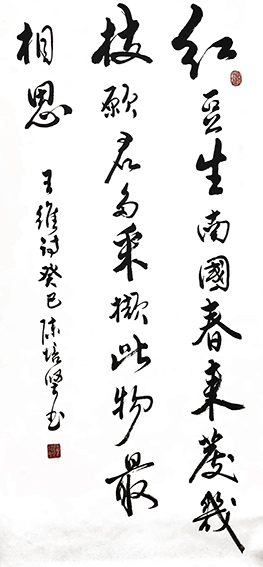 红豆生南國春來發幾
枝願君多采擷此物最
相思
王維诗癸巳陳培坚书